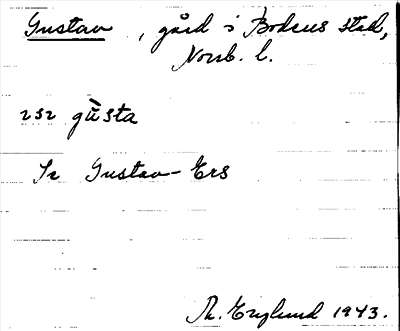 Gustav, gård i Bodens stad,
Norrb. l.
252 gùsta
Se Gustav-Ers
Th. Englund 1943.